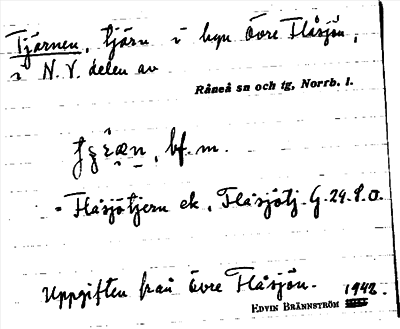 Tjärnen, tjärn i byn Övre Flåsjön,
i N.V. delen av
Råneå sn och tg, Norrb. l.
bf. m.
= Flåsjötjern ek, Flåsjötj. G. 29.8.O.
Uppgiften från Övre Flåsjön. 1942.
EDVIN BRÄNNSTRÖM